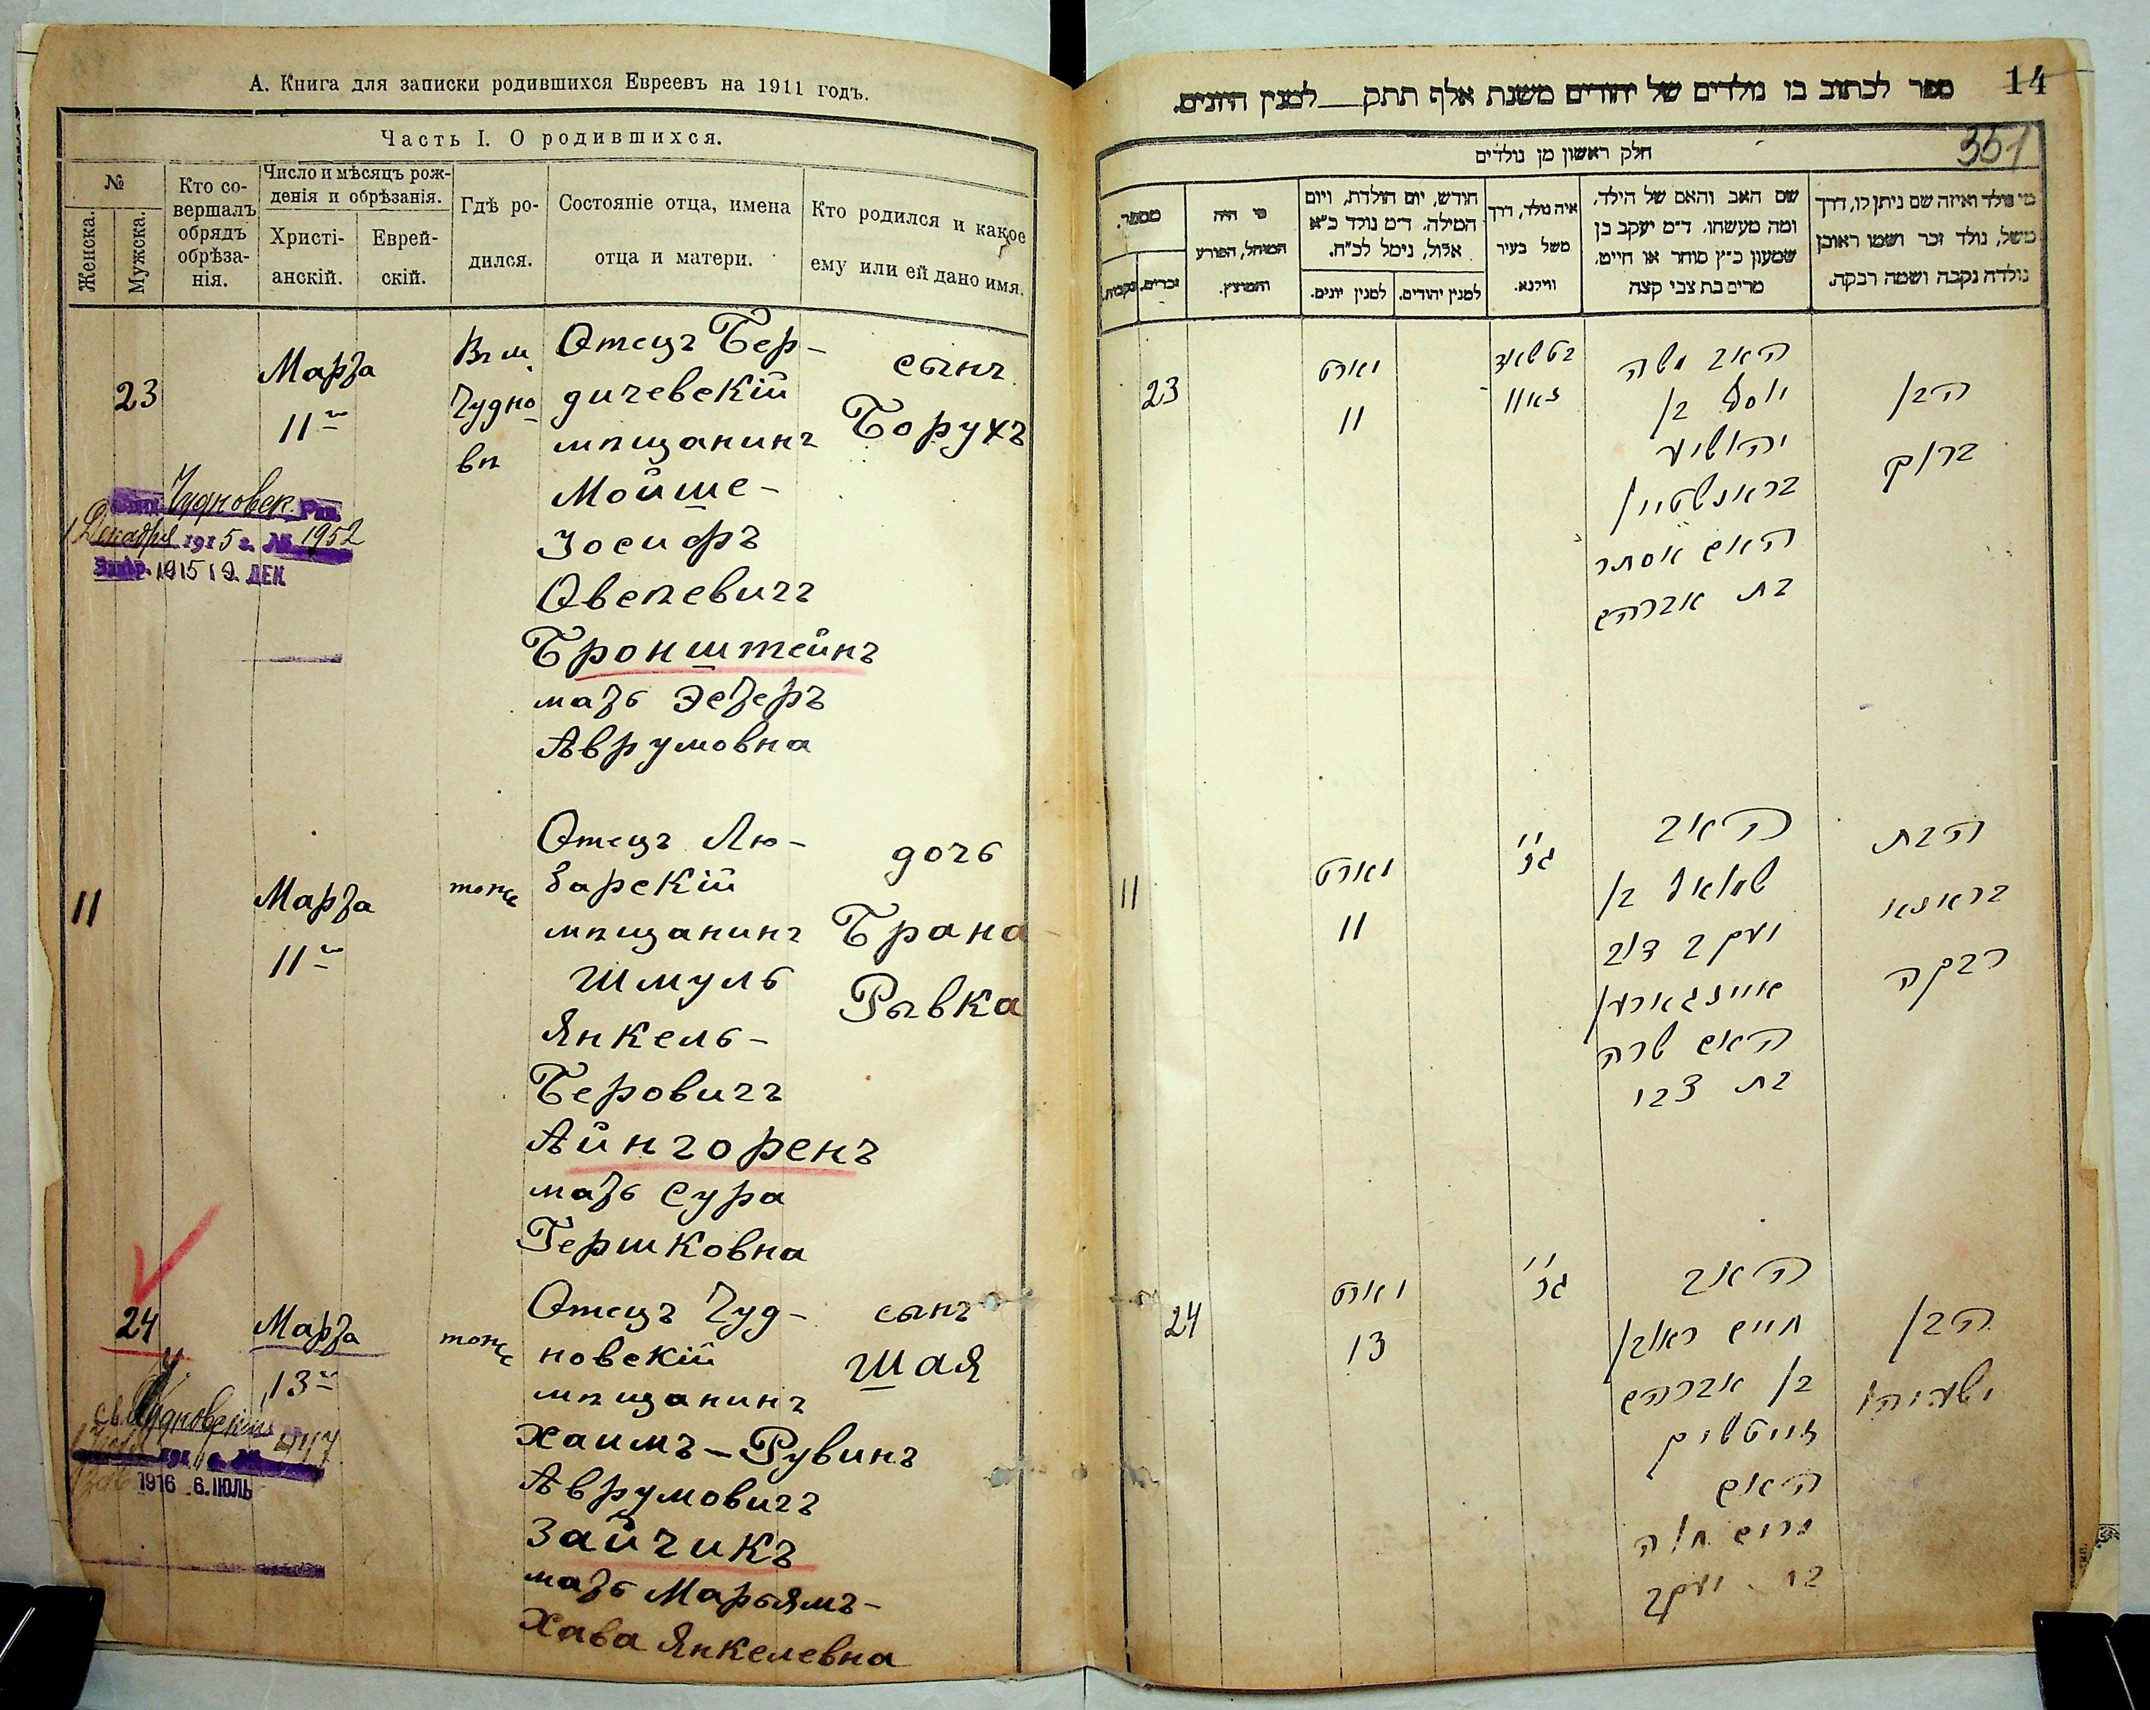 А. Книга для записки родившихся Евреевъ на 1911 годъ.
Часть I. О родившихся.
№
Женска.
Мужска.
Кто со-
вершалъ
обрядъ
обрѣза-
нія.
Число и мѣсяцъ рож-
денія и обрѣзанія.
Христі-
анскій.
Еврей-
скій.
Гдѣ ро-
дился.
Состояніе отца, имена
отца и матери.
Кто родился и какое
ему или ей дано имя.
23
Марта
11го
Въ м.
Чудно
вѣ
Отецъ Бер-
дичевскій
мѣщанинъ
Мойше-
Іосифъ
Овсѣевичъ
Бронштейнъ
мать Эстеръ
Аврумовна
сынъ
Борухъ
Чудновск. Рав.
1 Декабря 1915 г. № 1952
1915 19. ДЕК
11
Марта
11го
тоже
Отецъ Лю-
барскій
мѣщанинъ
Шмуль
Янкель-
Беровичъ
Айнгоренъ
мать Сура
Гершковна
дочь
Брана
Рывка
24
Марта
13го
тоже
Отецъ Чуд-
новскій
мѣщанинъ
Хаимъ-Рувинъ
Аврумовичъ
Зайчикъ
мать Марьямъ-
Хава Янкелевна
сынъ
Шая
1916 6. ІЮЛЬ
ספר לכתוב בו נולדים של יהודים משנת אלף תתק__ למנין היונים.
14
351
חלק ראשון מן נולדים
מספר.
זכרים.
נקבות.
מי היה
המוהל, הפורע
והמוצץ.
חודש, יום הולדת, ויום
המילה. ד״מ נולד כ״א
אלול, נימל לכ״ח.
למנין יונים.
למנין יהודים.
איה נולד, דרך
משל בעיר
ווילנא.
שם האב והאם של הילד,
ומה מעשהו. ד״מ יעקב בן
שמעון כ״ץ סוחר או חייט,
מרים בת צבי קצה
מי נולד ואיזה שם ניתן לו, דרך
משל, נולד זכר ושמו ראובן
נולדה נקבה ושמה רבקה.
23
מארט
11
האב משה
יוסף בן
יהושיע
בראנשטיין
האם אסתר
בת אברהם
הבן
ברוך
11
מארט
11
האב
שמואל בן
יעקב דוב
איינגארען
האם שרה
בת צבי
הבת
בראנא
רבקה
24
מארט
13
האב
חיים ראובן
בן אברהם
זייטשיק
האם
מרים חוה
בת יעקב
הבן
ישעיהו